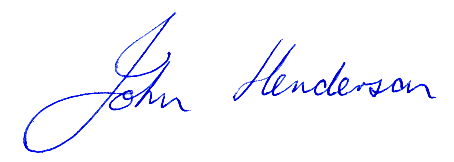 John Henderson